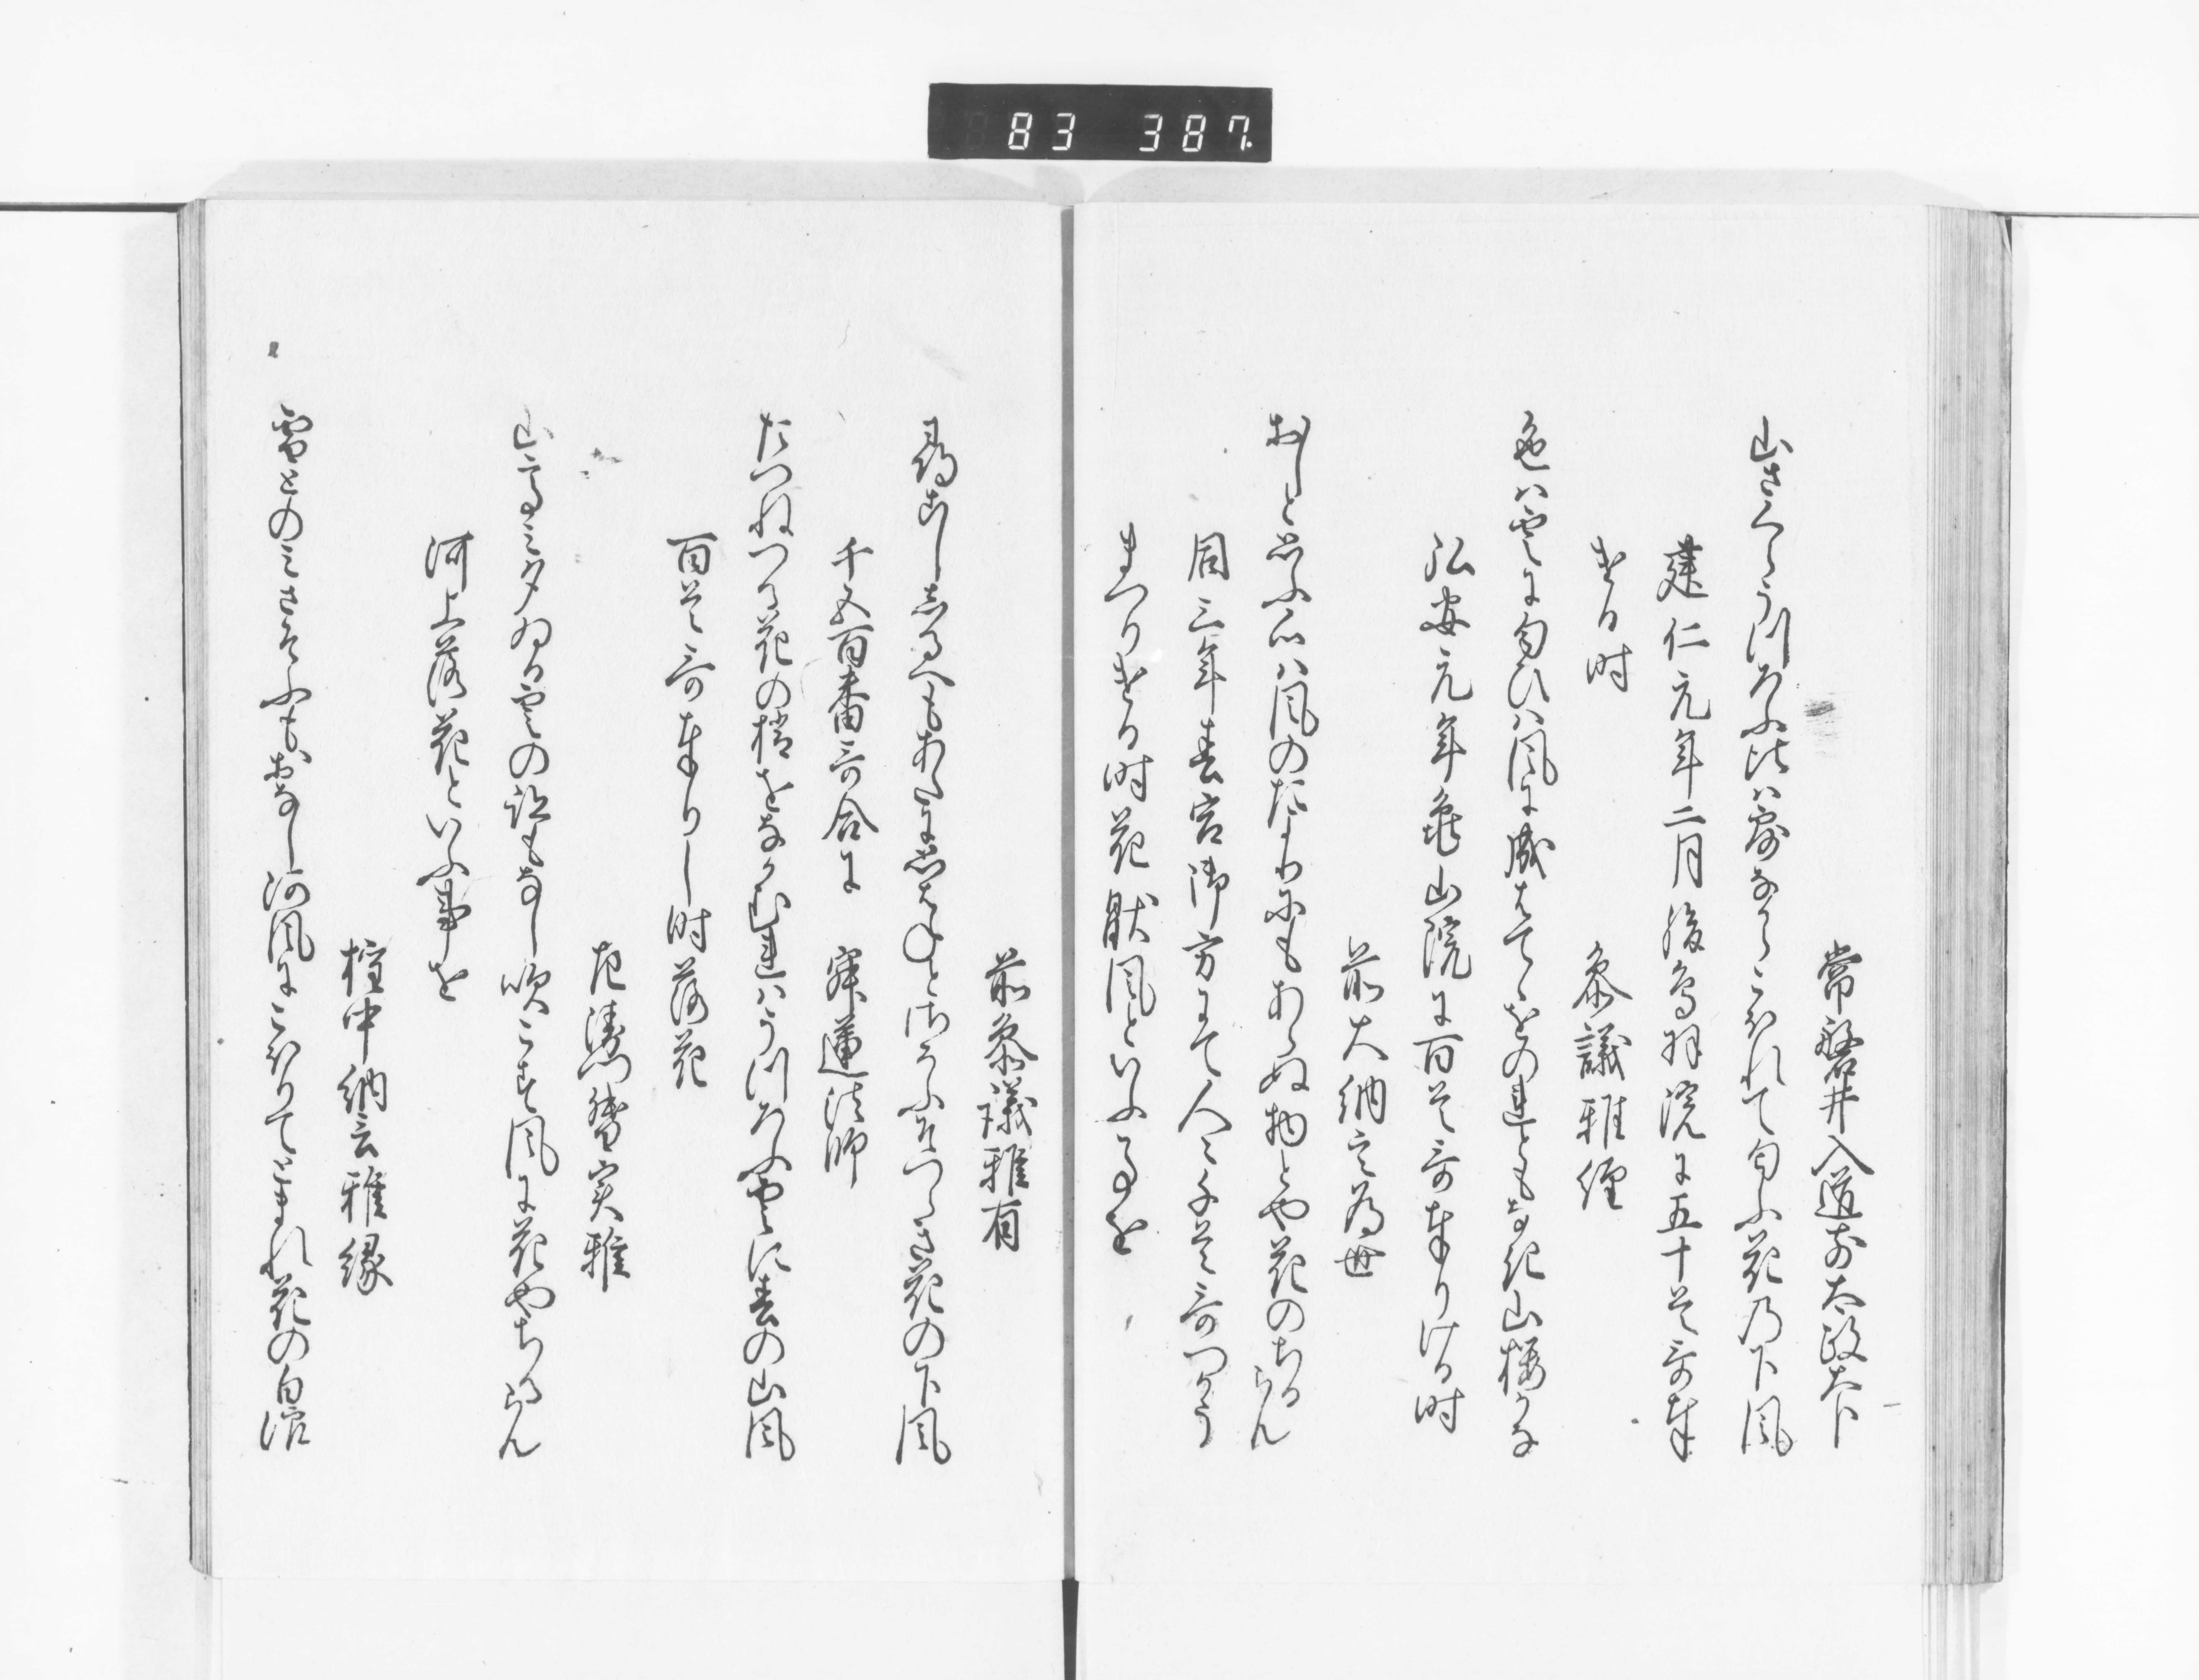 83 387
常磐井入道前太政大臣
山さくらうつろふ比は霞なからこほれて匂ふ花乃下風
建仁元年二月後鳥羽院に五十首哥奉
ける時　参議雅経
色は雲に匂ひは風に成はてゝをのれともなき山桜かな
弘安元年亀山院に百首哥奉りける時
前大納言為世
おしと思ふ心は風のたよりにもあらぬ物とや花のちるらん
同三年春宮御方にて人々千首哥つかう
まつりける時花献風といふ事を
前参議雅有
尋こししるへもあたに思はねとさそふはつらき花の下風
千五百番哥合に　寂蓮法師
たつねつる花の梢をなかむれはうつろふ雲に春の山風
百首哥奉りし時落花
左兵衛督実雅
山高み夕ゐる雲の跡もなし吹こす風に花やちるらん
河上落花といふ事を
権中納言雅縁
雪とのみさそふもおなし河風にこほりてとまれ花の白浪